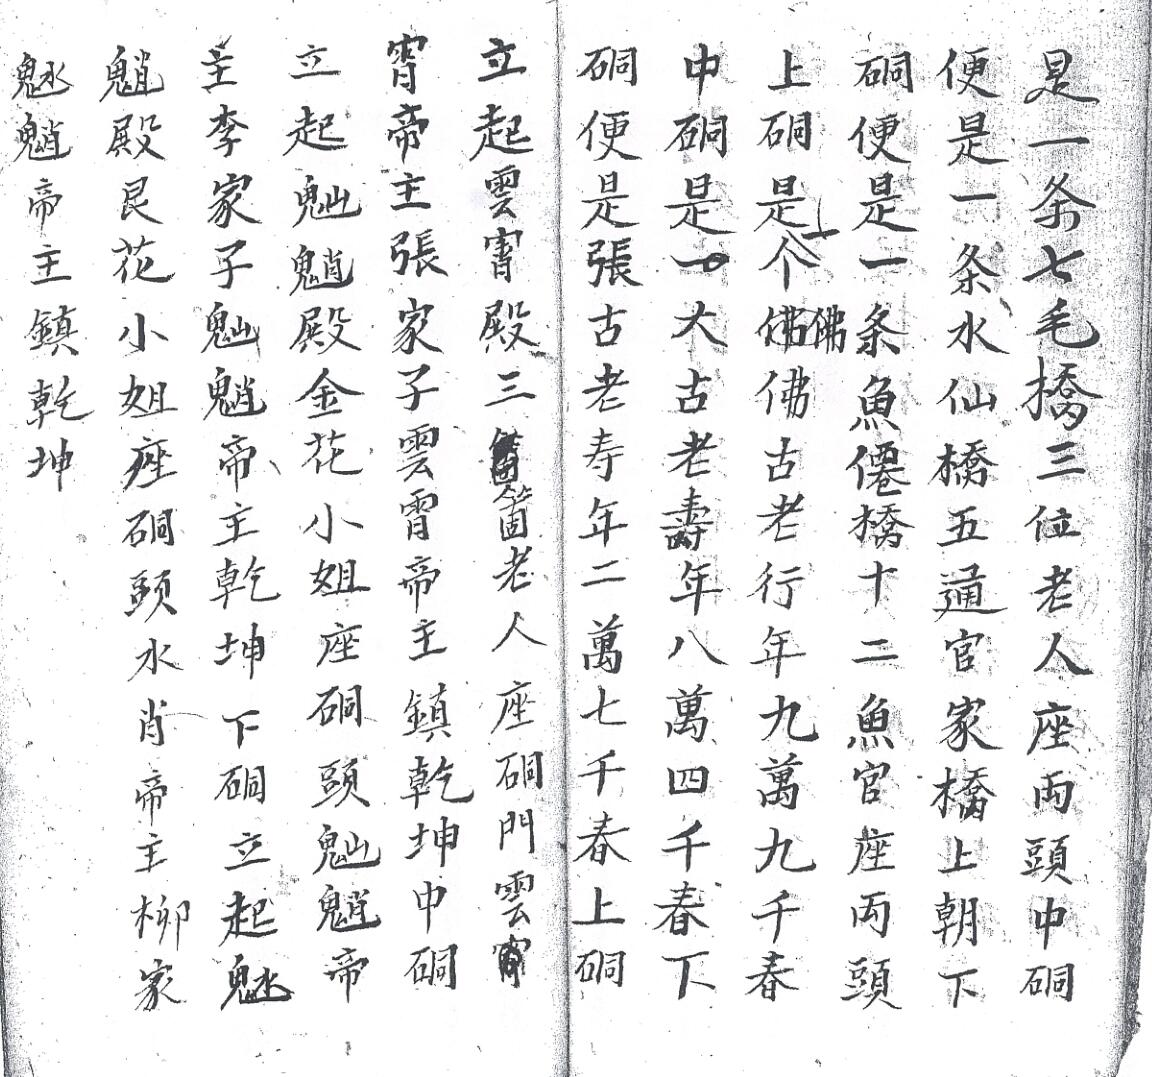 是一条七毛橋三位老人座両頭中硐
便是一条水仙橋五通官家橋上朝下
硐便是一条魚僊橋十二魚官座両頭
上硐是一个佛佛古老行年九萬九千春
中硐是一大古老壽年八萬四千春下
硐便是張古老寿年二萬七千春上硐
立起雲霄殿三箇老人座硐門雲霄
霄帝主張家子雲霄帝主鎮乾坤中硐
立起魈殿金花小姐座硐頭魈帝
主李家子魈帝主乾坤下硐立起
魈殿艮花小姐座硐頭水肖帝主柳家
魈帝主鎮乾坤